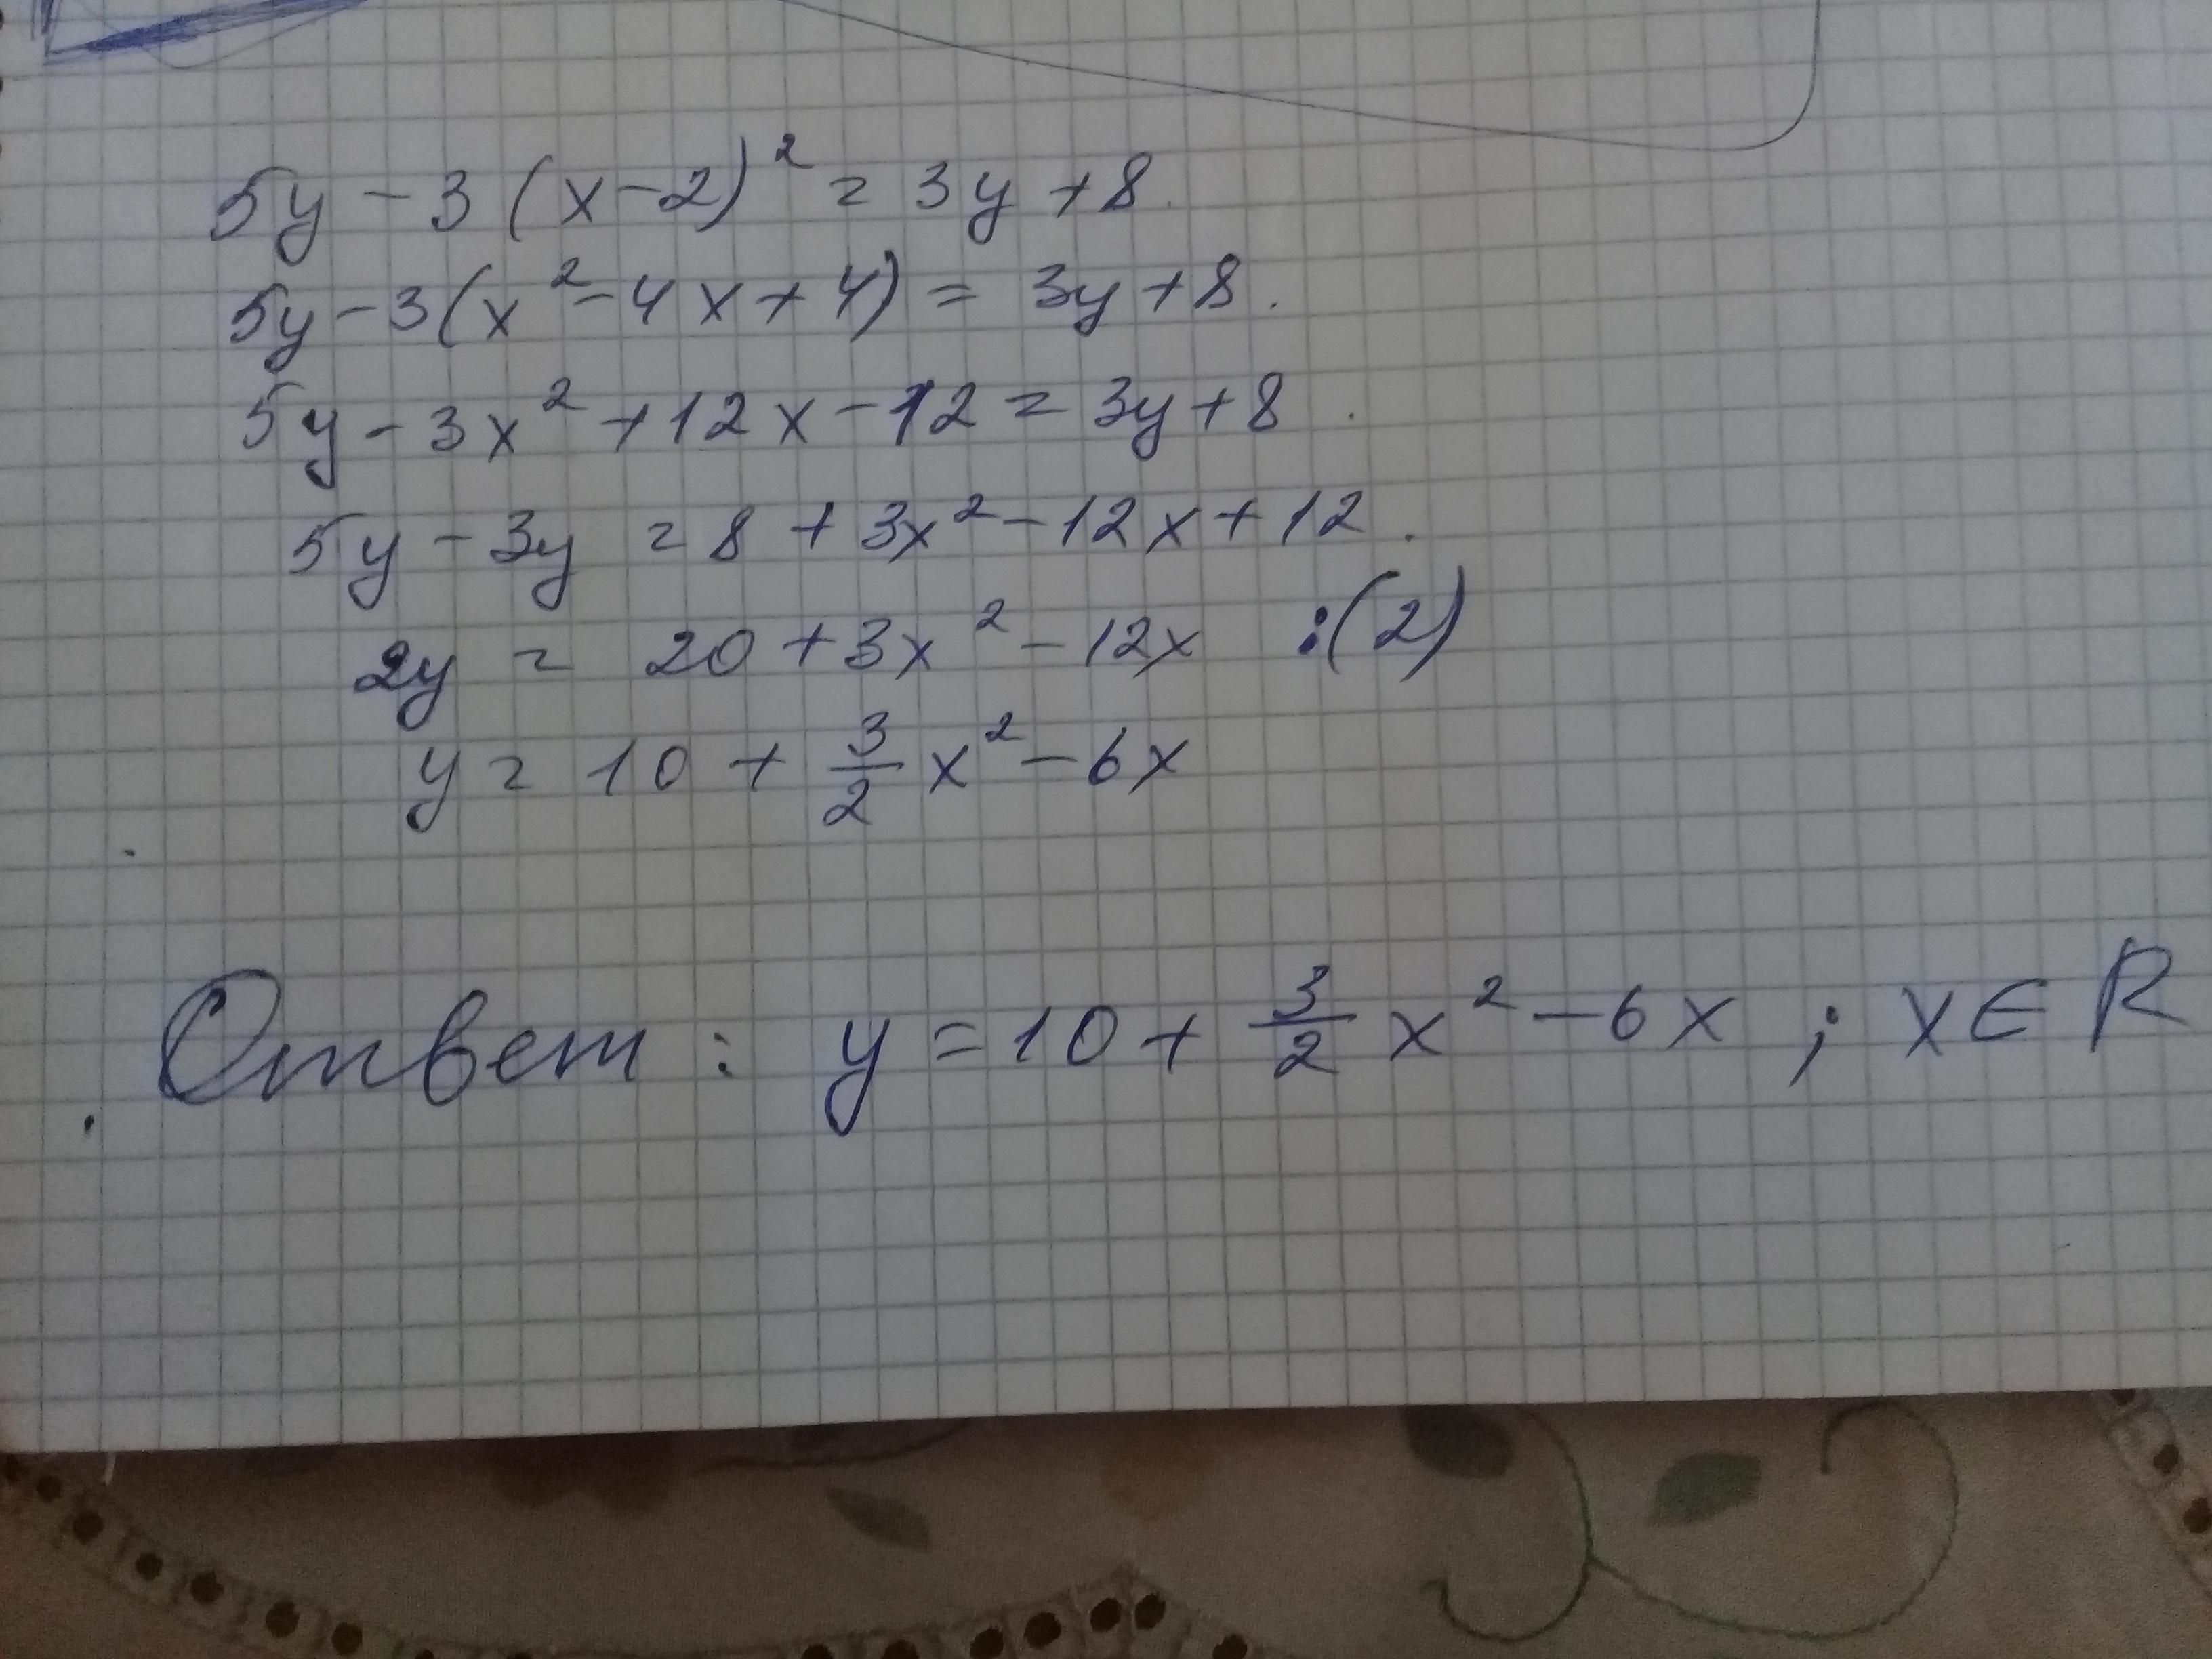 5y - 3(x-2)² = 3y + 8.
5y - 3(x² - 4x + 4) = 3y + 8.
5y - 3x² + 12x - 12 = 3y + 8.
5y - 3y = 8 + 3x² - 12x + 12.
2y = 20 + 3x² - 12x :(2)
y = 10 + 3/2 x² - 6x
Ответ: y = 10 + 3/2 x² - 6x ; x ∈ R